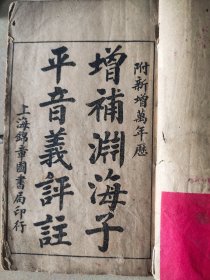 附新增萬年歷
增補淵海子
平音義評註
上海錦章圖書局印行